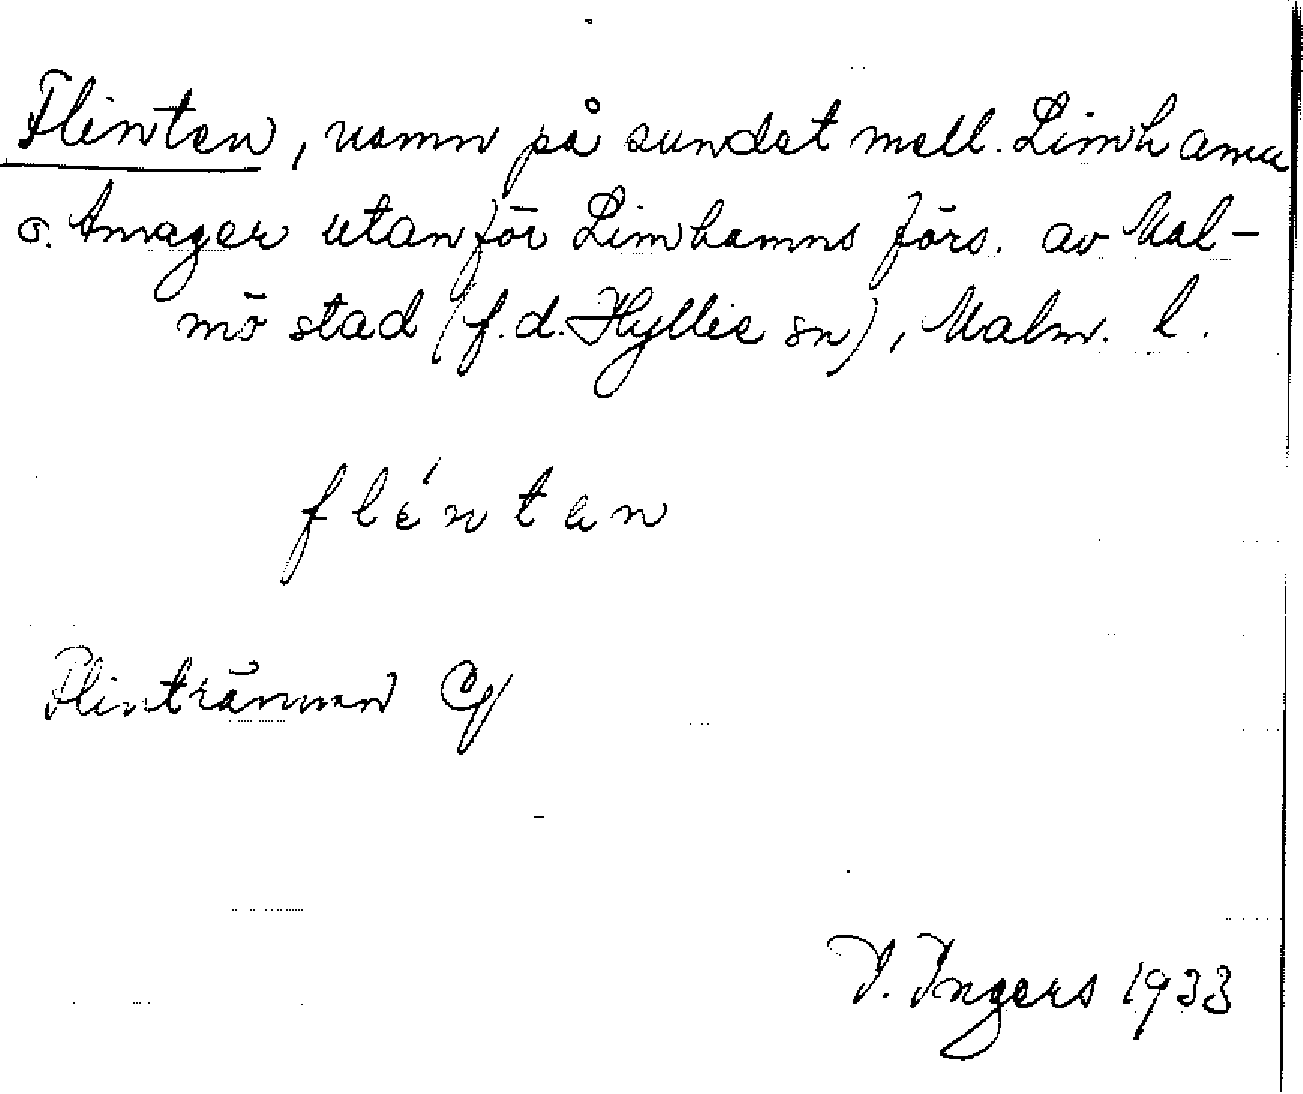 Flinten, namn på sundet mell. Limhamn
o. Amager utanför Limhamns förs. av Mal-
mö stad (f.d. Hyllie sn), Malm. l.
fléntan
Flintrännan
I. Ingers 1933